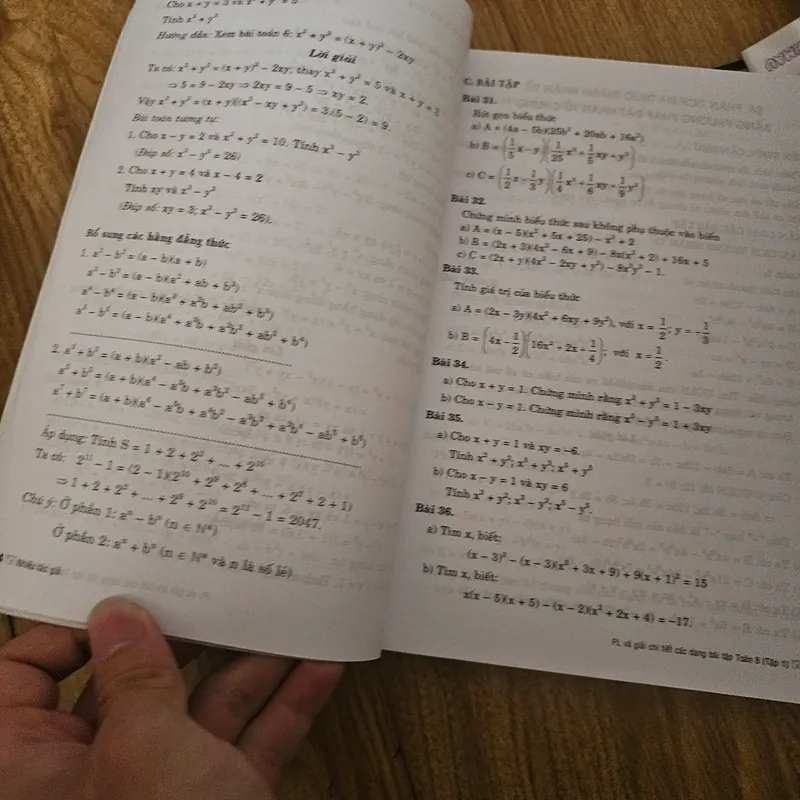 Cho x + y = 3 và x² + y² = 5
Tính x³ + y³
Hướng dẫn: Xem bài toán 6: x² + y² = (x + y)² – 2xy
Lời giải
Ta có: x² + y² = (x + y)² – 2xy; thay x² + y² = 5 và x + y = 3
⇒ 5 = 9 – 2xy ⇒ 2xy = 9 – 5 ⇒ xy = 2.
Vậy x³ + y³ = (x + y)(x² – xy + y²) = 3.(5 – 2) = 9.
Bài toán tương tự:
1. Cho x – y = 2 và x² + y² = 10. Tính x³ – y³
(Đáp số: x³ – y³ = 26)
2. Cho x + y = 4 và x – 4 = 2
Tính xy và x³ – y³
(Đáp số: xy = 3; x³ – y³ = 26).
Bổ sung các hằng đẳng thức
1. a² – b² = (a – b)(a + b)
a³ – b³ = (a – b)(a² + ab + b²)
a⁴ – b⁴ = (a – b)(a³ + a²b + ab² + b³)
a⁵ – b⁵ = (a – b)(a⁴ + a³b + a²b² + ab³ + b⁴)
2. a³ + b³ = (a + b)(a² – ab + b²)
a⁵ + b⁵ = (a + b)(a⁴ – a³b + a²b² – ab³ + b⁴)
a⁷ + b⁷ = (a + b)(a⁶ – a⁵b + a⁴b² – a³b³ + a²b⁴ – ab⁵ + b⁶)
Áp dụng: Tính S = 1 + 2 + 2² + ... + 2¹⁰
Ta có: 2¹¹ – 1 = (2 – 1)(2¹⁰ + 2⁹ + 2⁸ + ... + 2² + 2 + 1)
⇒ 1 + 2 + 2² + ... + 2⁹ + 2¹⁰ = 2¹¹ – 1 = 2047.
Chú ý: Ở phần 1: aⁿ – bⁿ (n ∈ N*)
Ở phần 2: aⁿ + bⁿ (n ∈ N* và n là số lẻ)
Nhiều tác giả
C. BÀI TẬP
Bài 31.
Rút gọn biểu thức
a) A = (4a – 5b)(25b² + 20ab + 16a²)
b) B = (1/5 x – y)(1/25 x² + 1/5 xy + y²)
c) C = (1/2 x – 1/3 y)(1/4 x² + 1/6 xy + 1/9 y²)
Bài 32.
Chứng minh biểu thức sau không phụ thuộc vào biến
a) A = (x – 5)(x² + 5x + 25) – x³ + 2
b) B = (2x + 3)(4x² – 6x + 9) – 8x(x² + 2) + 16x + 5
c) C = (2x + y)(4x² – 2xy + y²) – 8x³y³ – 1.
Bài 33.
Tính giá trị của biểu thức
a) A = (2x – 3y)(4x² + 6xy + 9y²), với x = 1/2; y = –1/3
b) B = (4x – 1/2)(16x² + 2x + 1/4); với x = 1/2.
Bài 34.
a) Cho x + y = 1. Chứng minh rằng x³ + y³ = 1 – 3xy
b) Cho x – y = 1. Chứng minh rằng x³ – y³ = 1 + 3xy
Bài 35.
a) Cho x + y = 1 và xy = –6.
Tính x² + y²; x³ + y³; x⁵ + y⁵
b) Cho x – y = 1 và xy = 6
Tính x² + y²; x³ – y³; x⁵ – y⁵.
Bài 36.
a) Tìm x, biết:
(x – 3)³ – (x – 3)(x² + 3x + 9) + 9(x + 1)² = 15
b) Tìm x, biết:
x(x – 5)(x + 5) – (x – 2)(x² + 2x + 4) = –17.
PL và giải chi tiết các dạng bài tập Toán 8 (Tập 1)